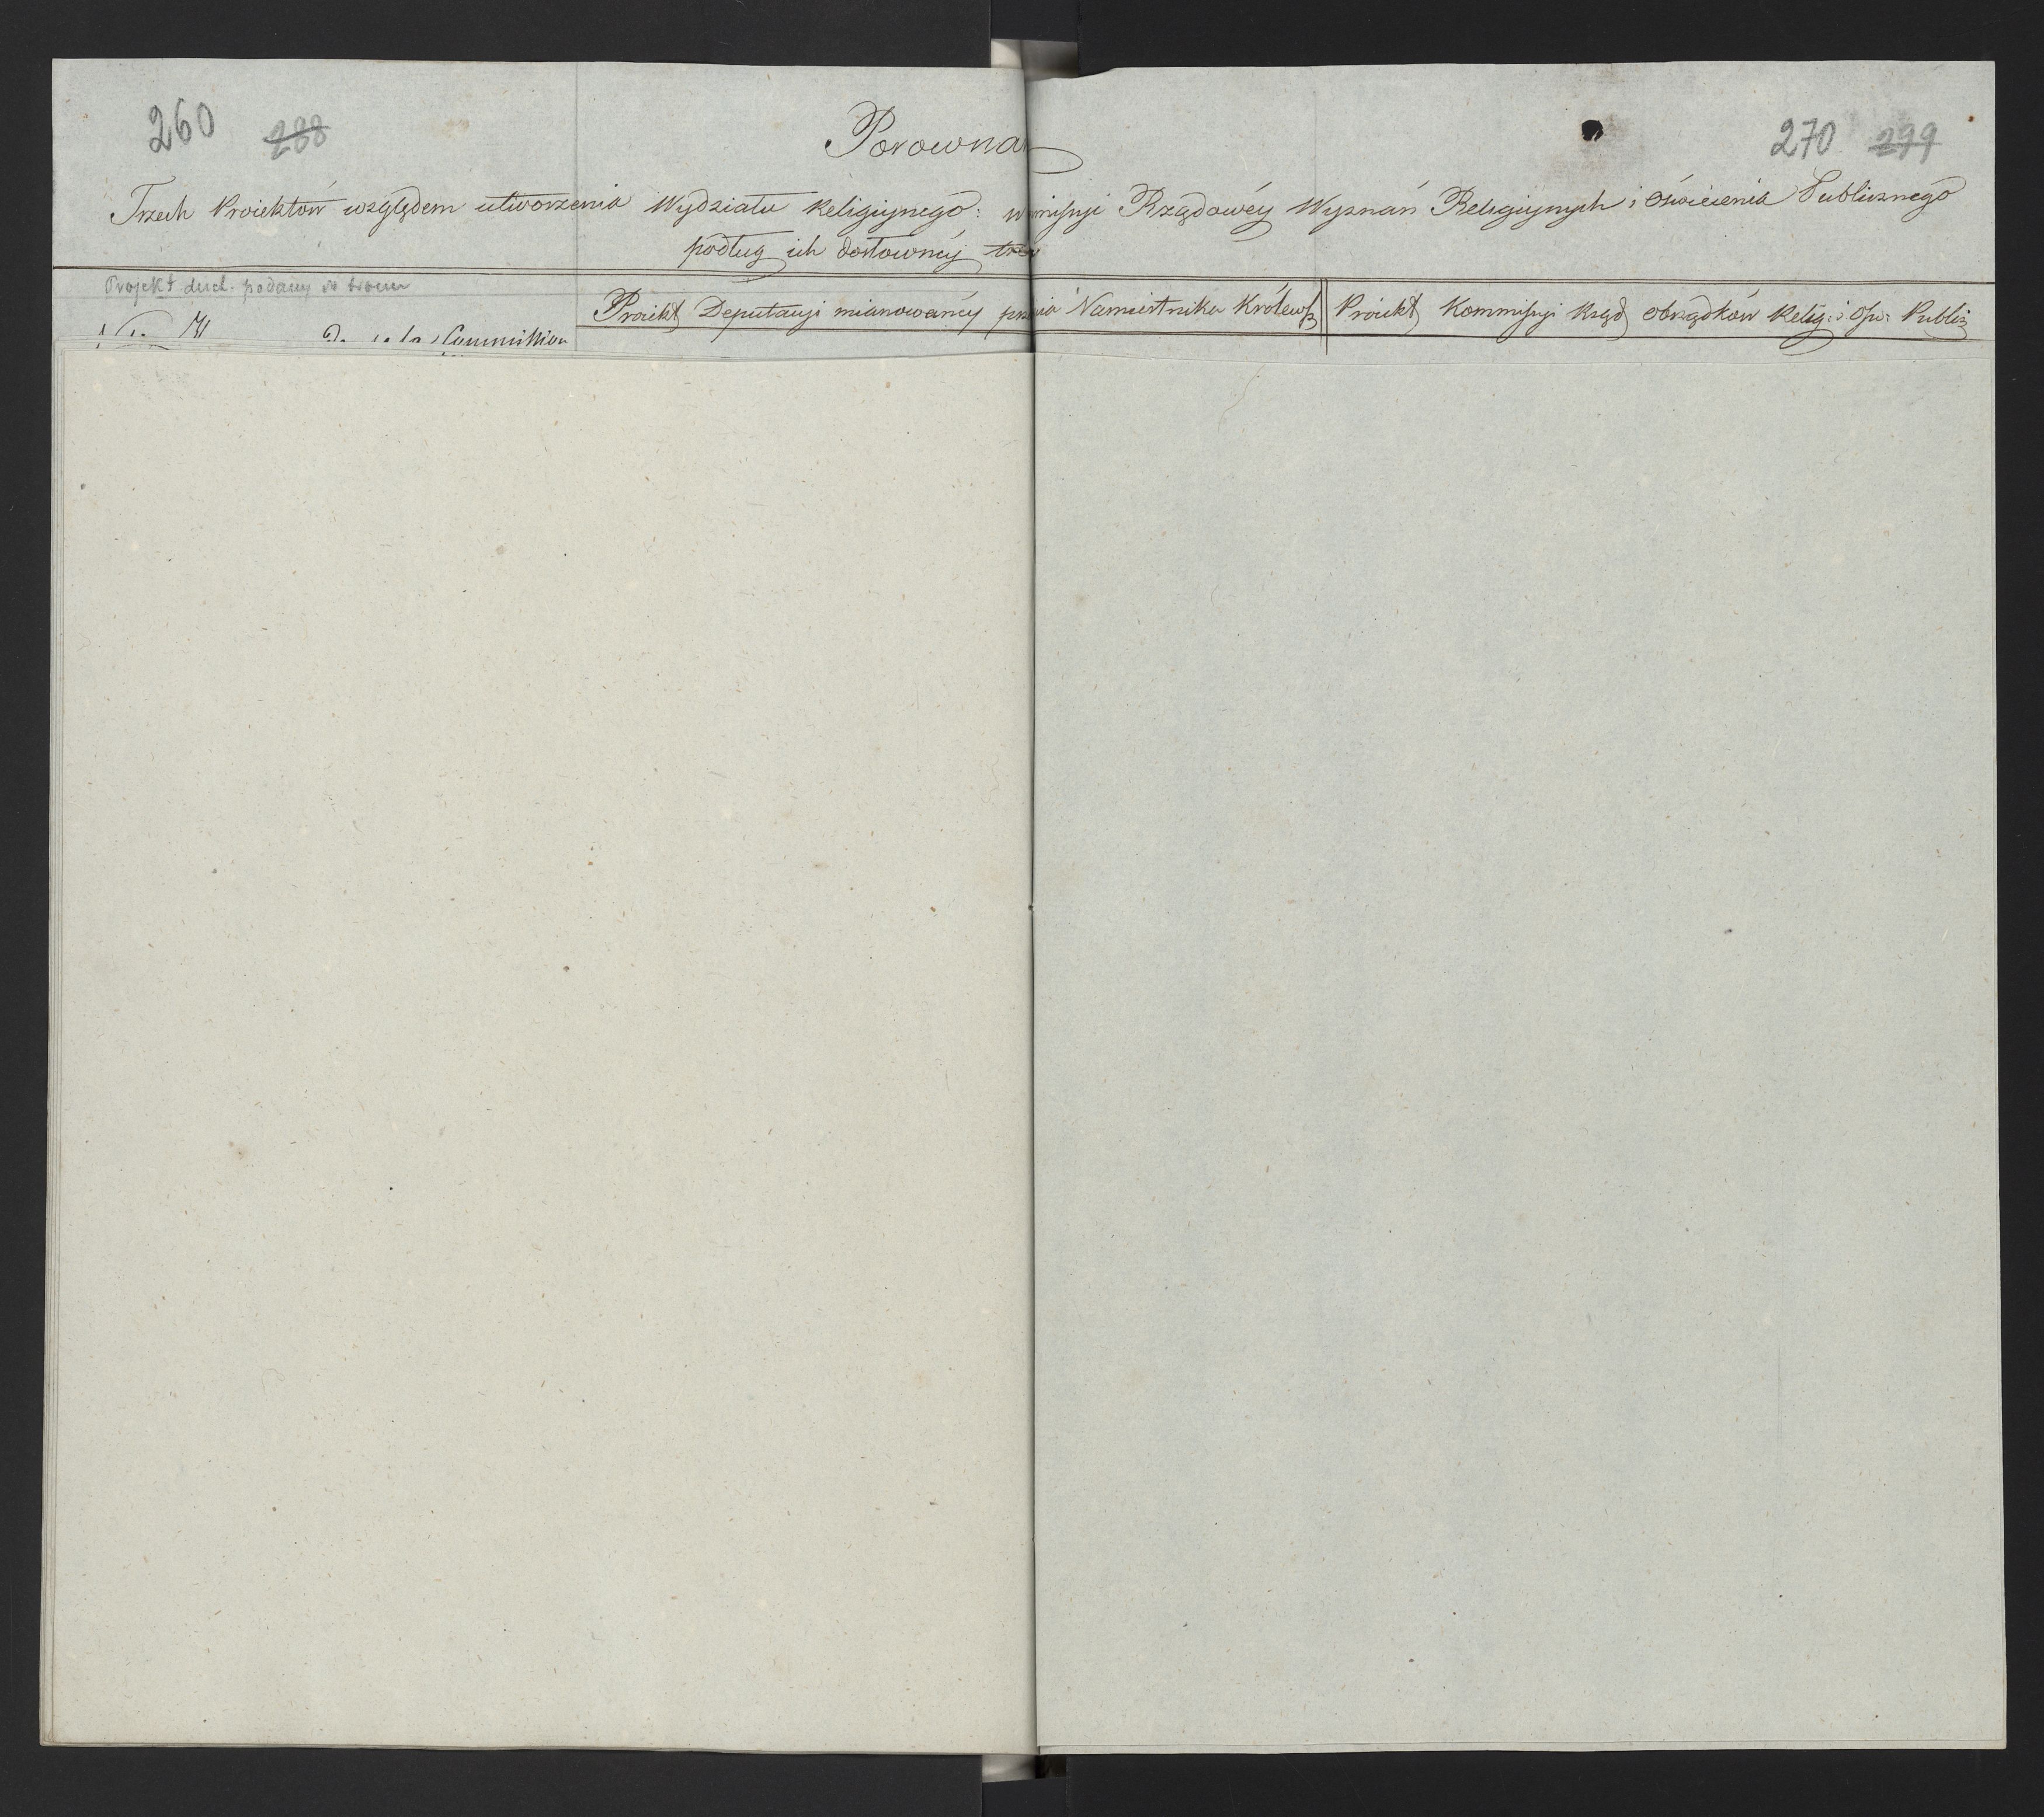 260 288
270 299
Porowna
Trzech Proiektów względem utworzenia Wydziału Religijnego: w missyi Rządowéy Wyznań Religijnych i Oświecenia Publicznego
podług ich dosłownéy treś
Projekt duch. podany
Proiekt Deputacyi mianowanéy prz Namiestnika Królews
Proiekt Kommissyi Rząd obrządków Relig: i Ośw: Publicz
de la Commission